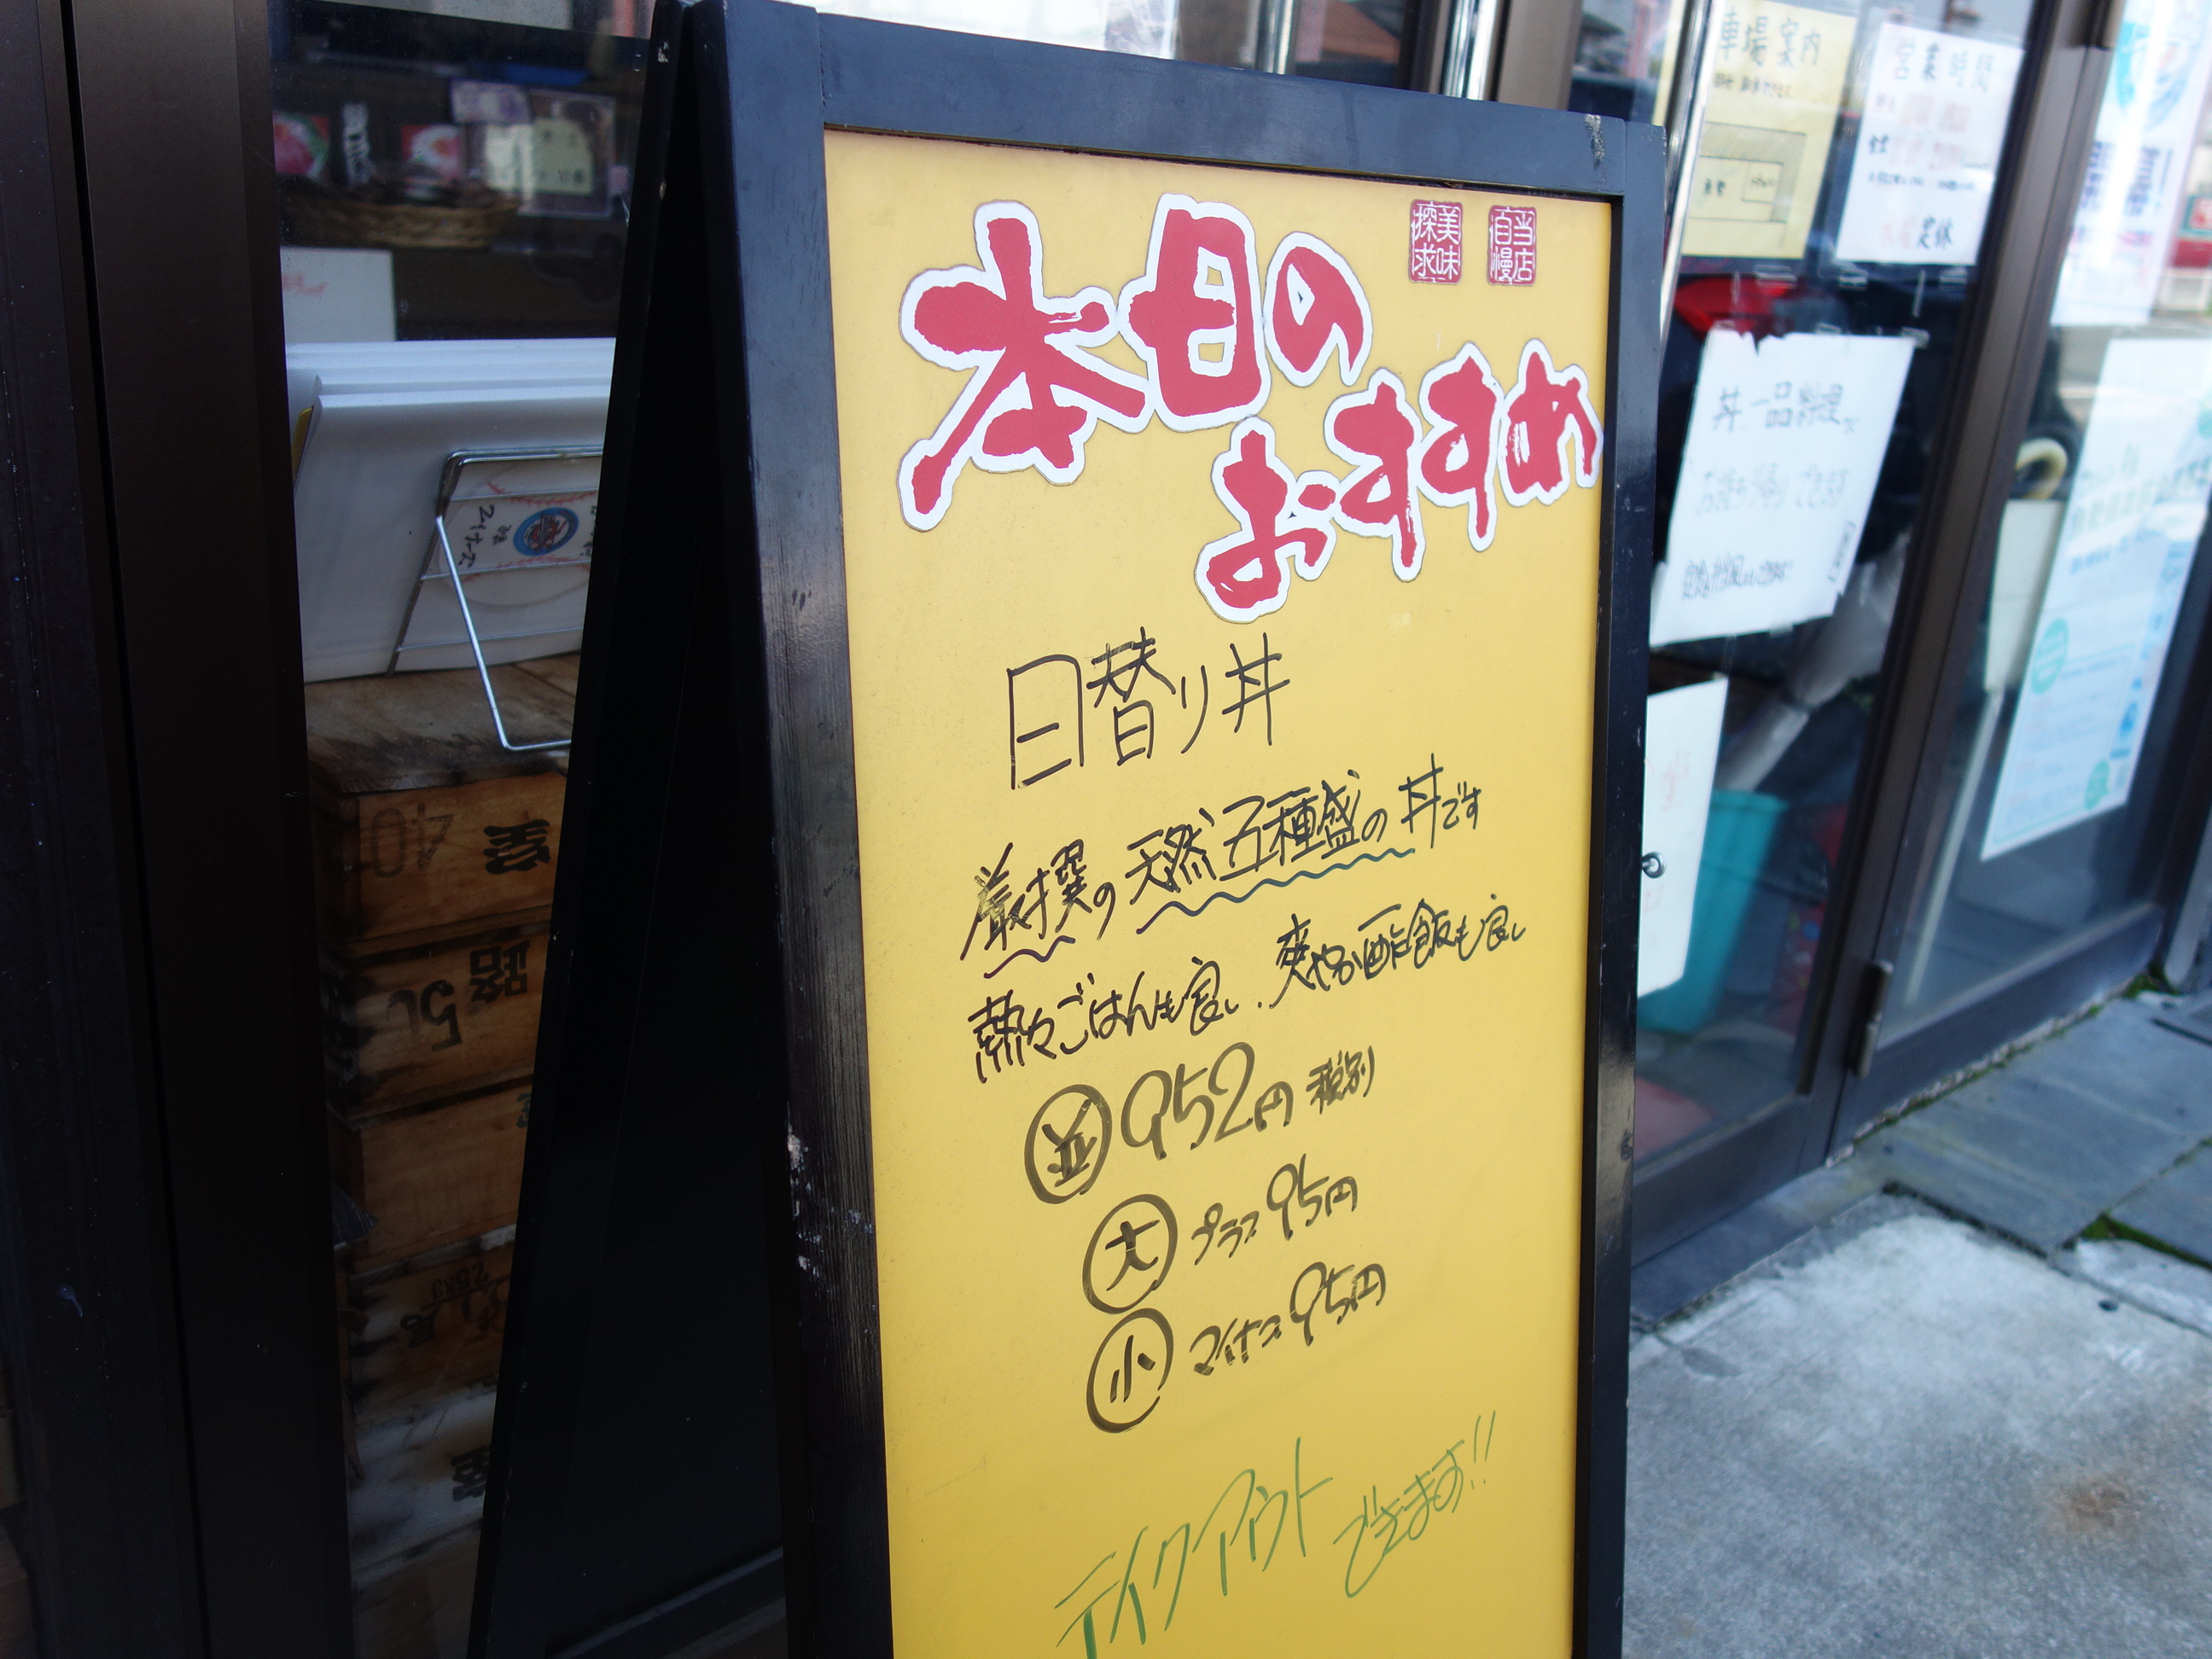 本日の
おすすめ
美味探求
当店自慢
日替り丼
厳撰の天然五種盛の丼です
熱々ごはんも良し、爽やか酢飯も良し
並 952円 税別
大 プラス 95円
小 マイナス 95円
テイクアウトできます!!
車場案内
営業時間
定休
丼 一品料理など
お持ち帰りできます
40
50
7.5kg